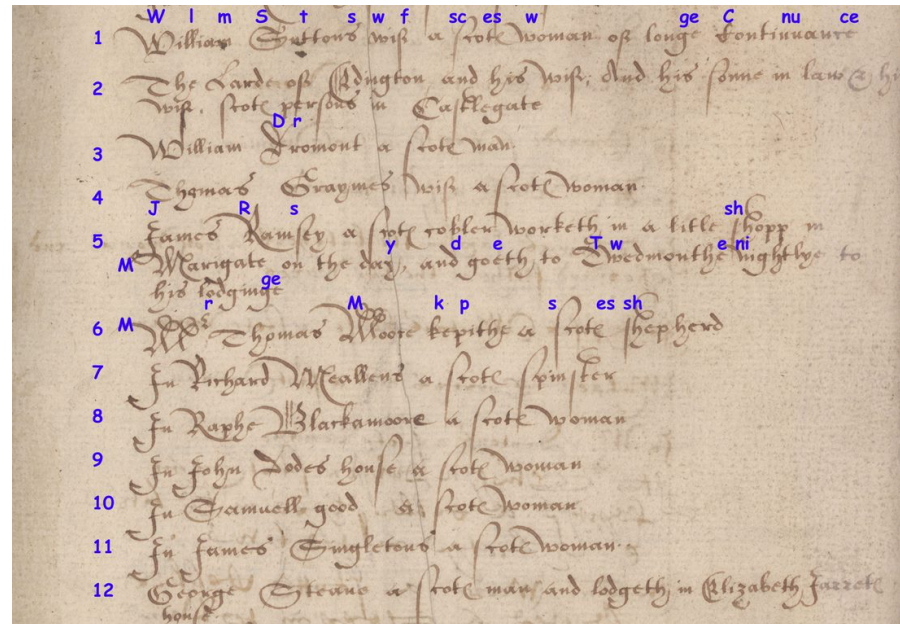 W l m S t s w f sc es w ge C nu ce
1 William Suttons wife a scotes woman of longe Continuance
2 The Larde of Edington and his wife, And his sonne in law & hi
wife, scotes persons in Castlegate
D r
3 William Dromont a scotes man
4 Thomas Graymes wife a scotes woman
J R s sh
5 James Ramsey a scotes cobler worketh in a litle shopp in
y d e T w e ni
M Marigate on the day, and goeth to Twedmouthe nightlye to
his lodginge
ge
r M k p s es sh
6 M Mr Thomas Moore kepithe a scotes shepherd
7 In Richard Meallens a scotes spinster
8 In Raphe Blackamoore a scotes woman
9 In John Dodes house a scotes woman
10 In Samuell good a scotes woman
11 In James Singletons a scotes woman
12 George Steavo a scotes man and lodgeth in Elizabeth Jarretes
house